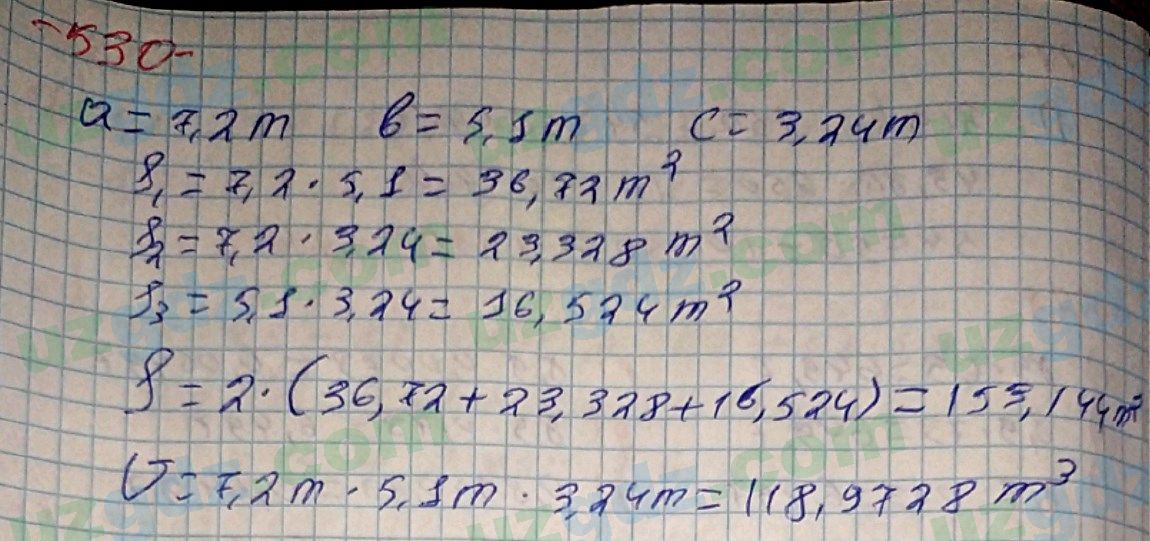 -530-
a = 7,2m b = 5,1m c = 3,24m
S₁ = 7,2 · 5,1 = 36,72 m²
S₂ = 7,2 · 3,24 = 23,328 m²
S₃ = 5,1 · 3,24 = 16,524 m²
S = 2 · (36,72 + 23,328 + 16,524) = 153,144 m²
V = 7,2m · 5,1m · 3,24m = 118,9728 m³
uzgdz.com